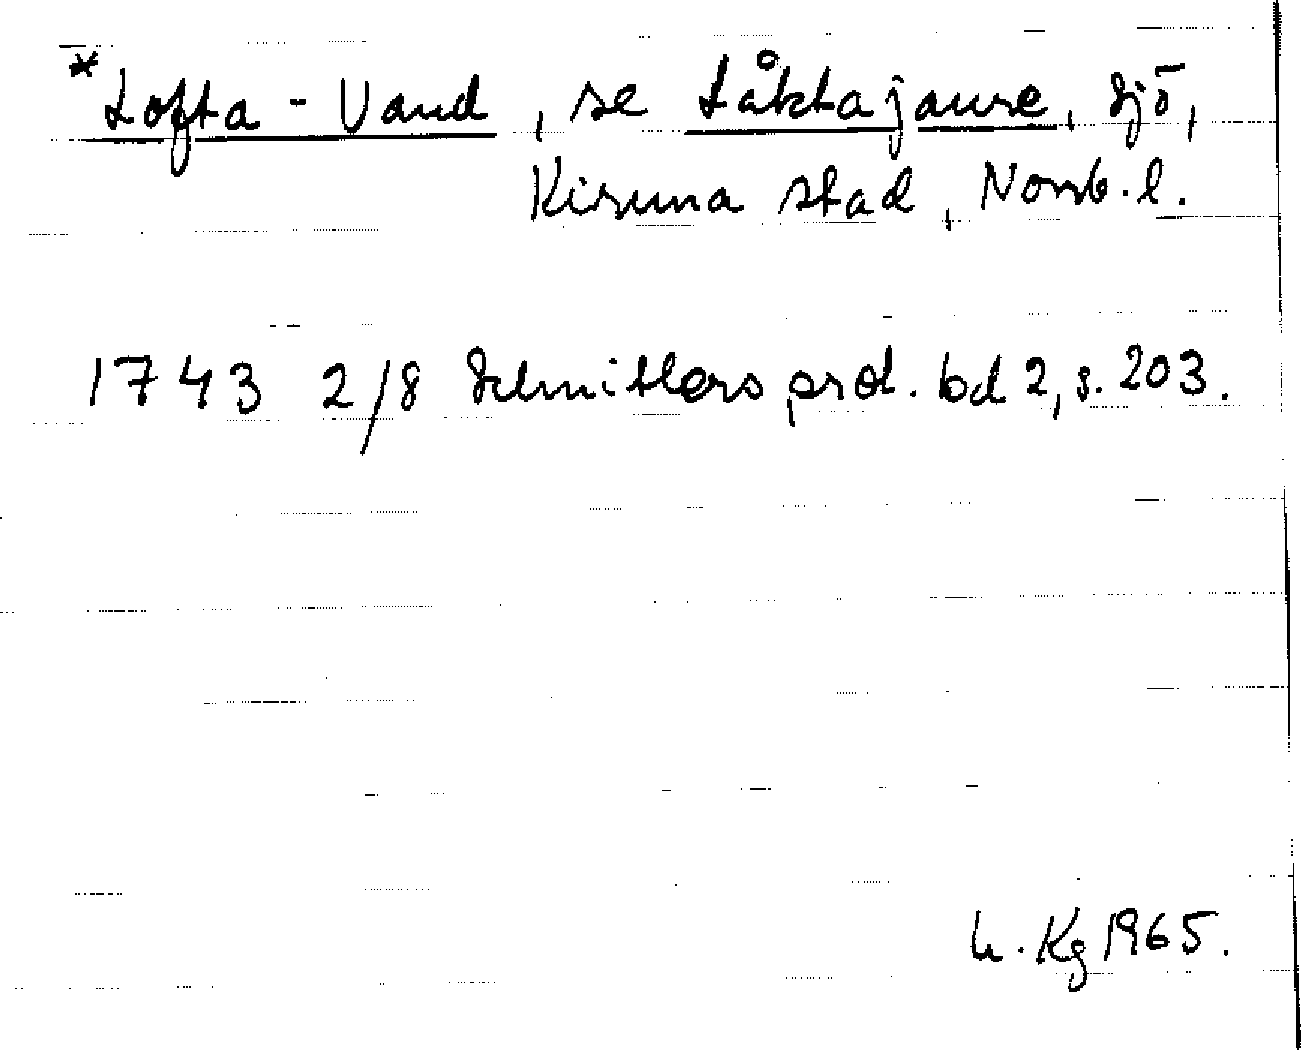 *Lofta-Vand, se Låktajaure, sjö,
Kiruna stad, Norrb. l.
1743 2/8 Schnitlers prot. bd 2, s. 203.
H. Kg 1965.